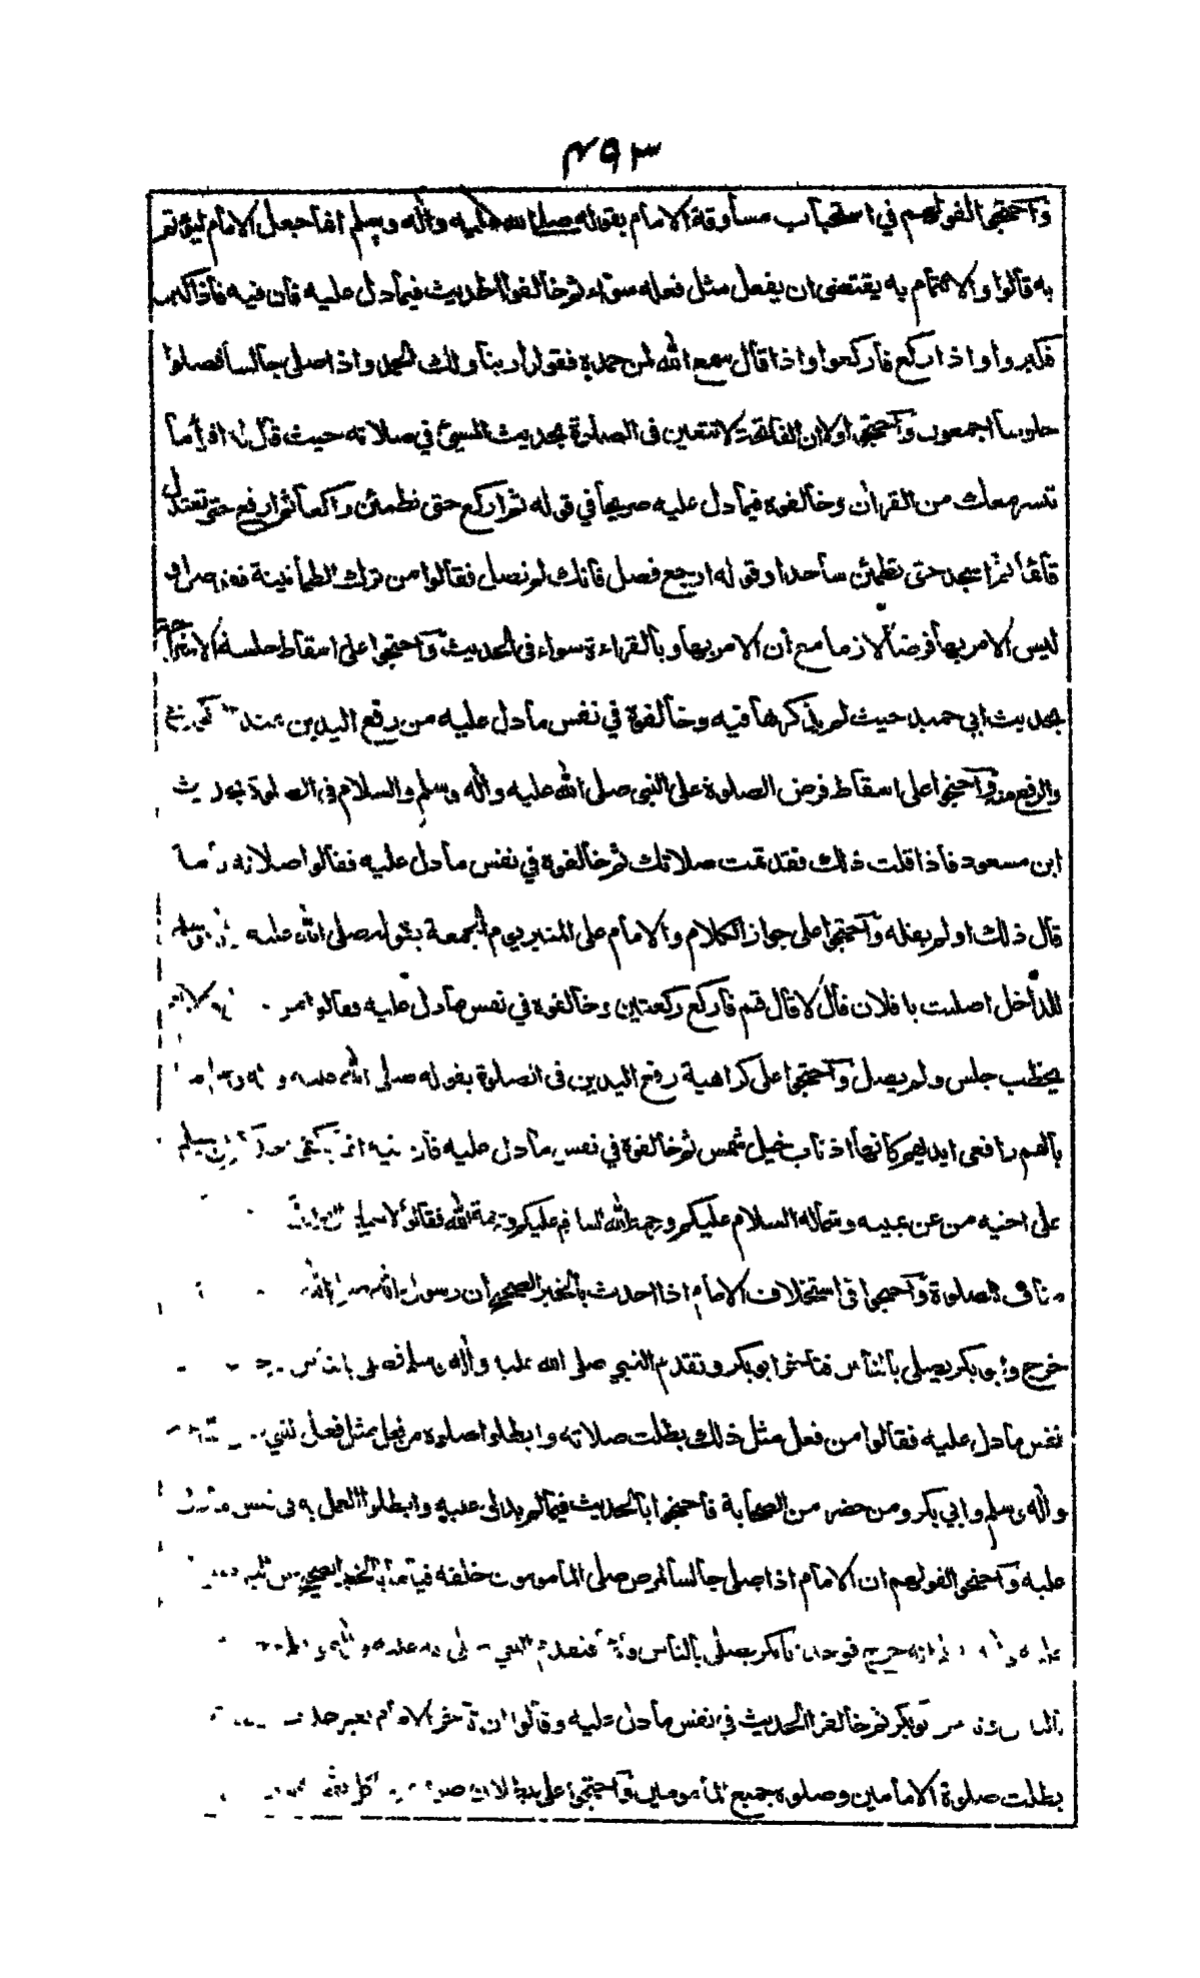 ٤٩٣
واحتجوا لقولهم في استحباب مساوقة الامام بقوله صلى الله عليه واله وسلم انما جعل الامام ليؤتم
به قالوا والائتمام به يقتضى ان يفعل مثل فعله سواء ثم خالفوا الحديث فيما دل عليه فان فيه فاذا كبر
فكبروا واذا ركع فاركعوا واذا قال سمع الله لمن حمده فقولوا ربنا ولك الحمد واذا صلى جالسا فصلوا
جلوسا اجمعون واحتجوا لان الفاتحة لا تتعين فى الصلوة بحديث المسيئ في صلاته حيث قال له اقرأ ما
تيسر معك من القرآن وخالفوه فيما دل عليه صريحا في قوله ثم اركع حتى تطمئن راكعا ثم ارفع حتى تعتدل
قائما ثم اسجد حتى تطمئن ساجدا وقوله ارجع فصل فانك لم تصل فقالوا من ترك الطمأنينة فقد صلى و
ليس الامر بها فرضا لازما مع أن الامر بها وبالقراءة سواء فى الحديث واحتجوا على اسقاط جلسة الاستراحة
بحديث ابي حميد حيث لم يذكرها فيه وخالفوه في نفس ما دل عليه من رفع اليدين عند الركوع
والرفع منه واحتجوا على اسقاط فرض الصلوة على النبى صلى الله عليه واله وسلم والسلام فى الصلوة بحديث
ابن مسعود فاذا قلت ذلك فقد تمت صلاتك ثم خالفوه في نفس ما دل عليه فقالوا صلاته تامة
قال ذلك اولم يقله واحتجوا على جواز الكلام والامام على المنبر يوم الجمعة بقوله صلى الله عليه واله وسلم
للداخل اصليت يا فلان قال لا قال قم فاركع ركعتين وخالفوه في نفس ما دل عليه وقالوا من
يخطب جلس ولم يصل واحتجوا على كراهية رفع اليدين فى الصلوة بقوله صلى الله عليه و
بالهم رافعى ايديهم كانها اذناب خيل شمس ثم خالفوه في نفس ما دل عليه فان فيه انما يكفى ان يسلم
على اخيه من عن يمينه وشماله السلام عليكم ورحمة الله السلام عليكم ورحمة الله فقالوا لا
الصلوة واحتجوا فى استخلاف الامام اذا احدث بالخبر الصحيح ان رسول الله صلى الله
خرج وابو بكر يصلى بالناس فتأخر ابو بكر وتقدم النبي صلى الله عليه واله وسلم فصلى بالناس
نفس ما دل عليه فقالوا من فعل مثل ذلك بطلت صلاته وابطلوا صلوة من فعل مثل فعل النبي
واله وسلم وابي بكر ومن حضر من الصحابة فاحتجوا بالحديث فيما لم يدل عليه وابطلوا العمل به فى نفس ما دل
عليه واحتجوا لقولهم ان الامام اذا صلى جالسا لمرض صلى المأمومون خلفه قياما بالخبر الصحيح
عليه انه خرج فوجد ابا بكر يصلى بالناس فتقدم النبي صلى الله عليه واله وسلم
ابو بكر ثم خالفوا الحديث في نفس ما دل عليه وقالوا ان تأخر الامام لغير حدث
بطلت صلوة الامامين وصلوة جميع المأمومين واحتجوا على بطلان